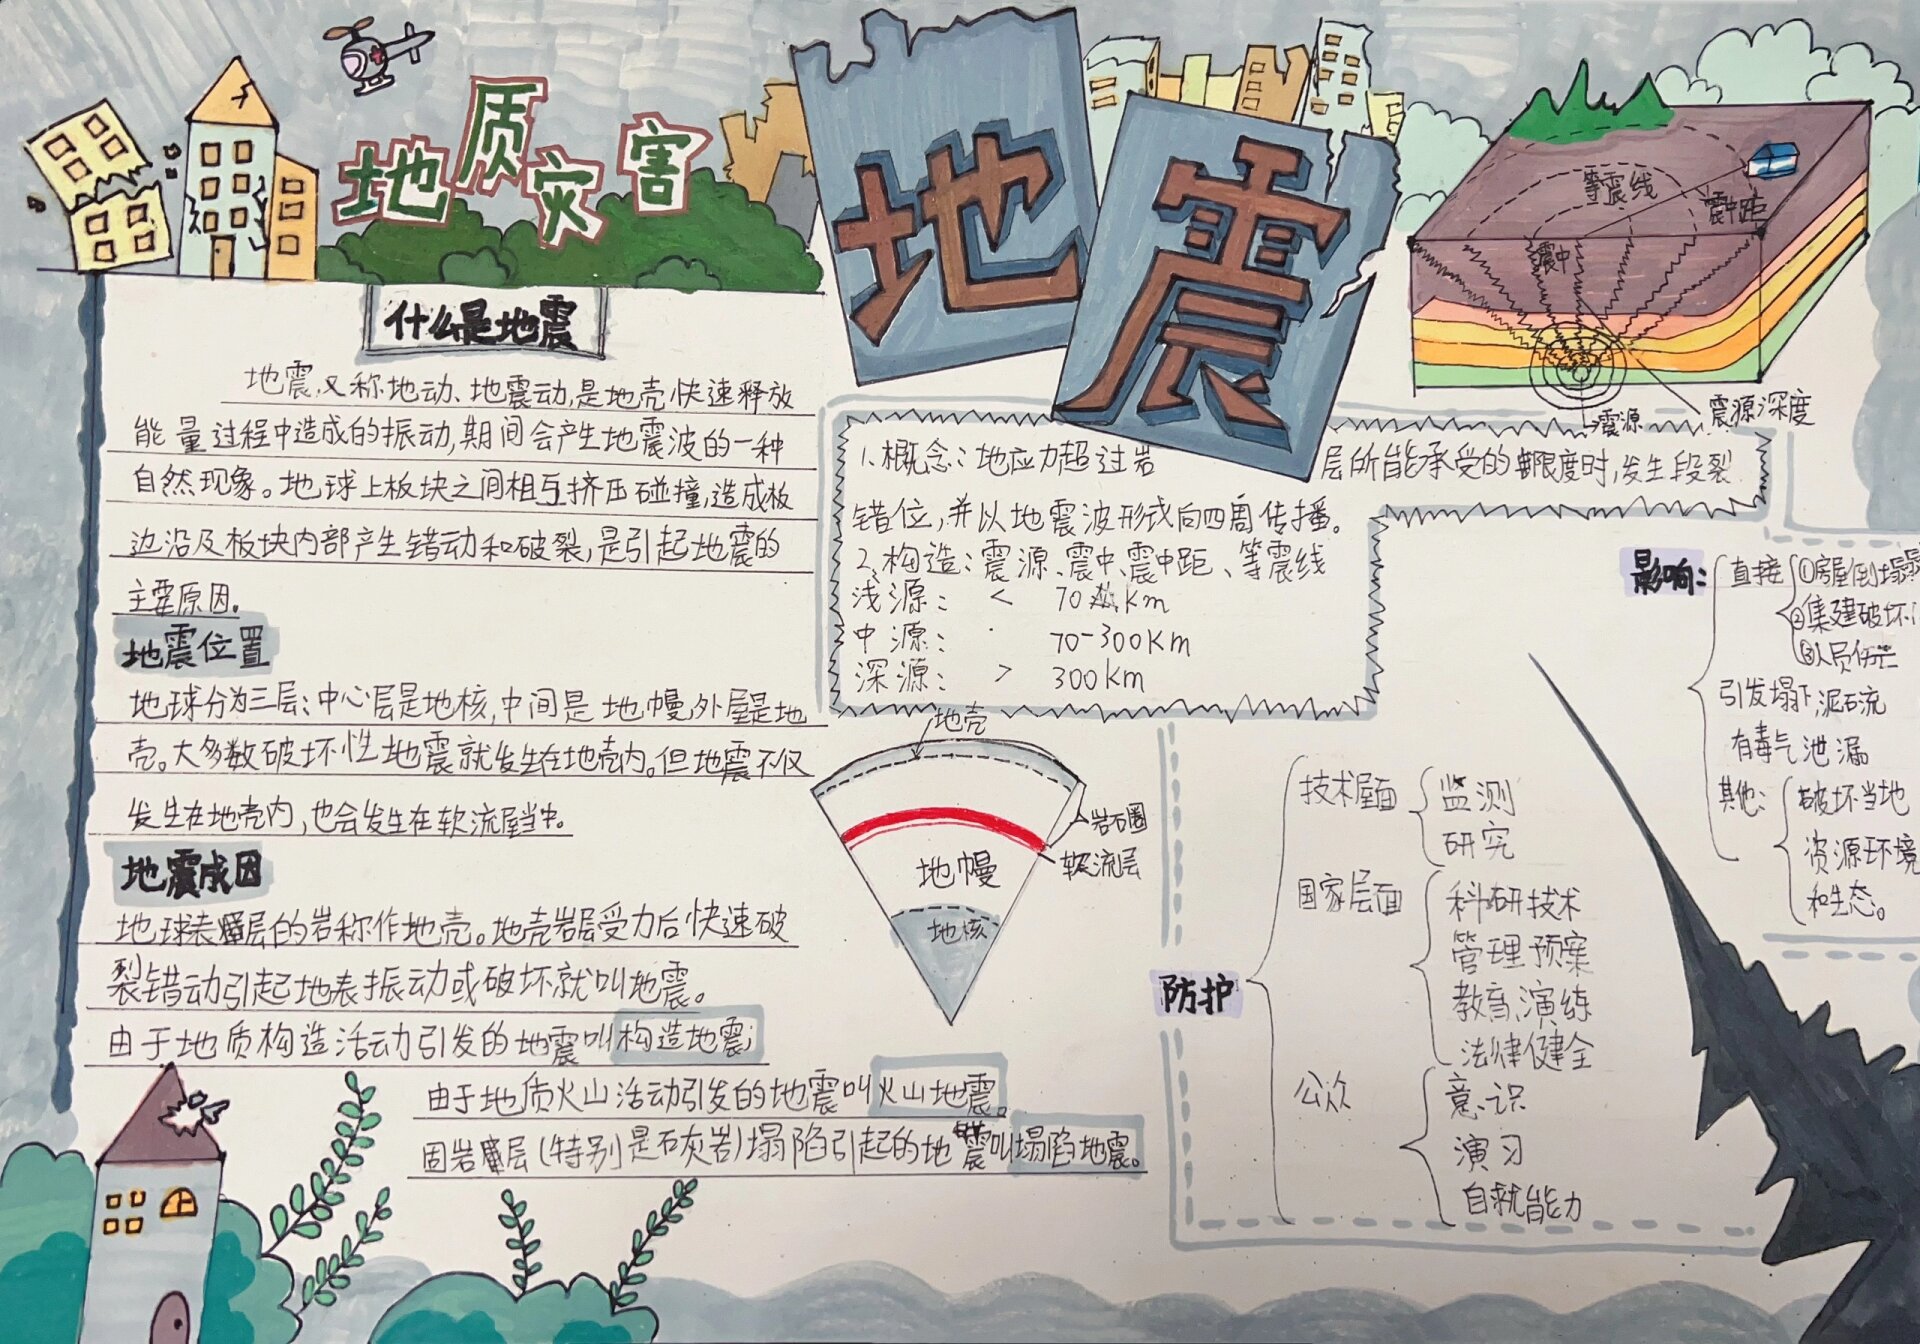 地质灾害
地震
什么是地震
地震,又称地动、地震动,是地壳快速释放
能量过程中造成的振动,期间会产生地震波的一种
自然现象。地球上板块之间相互挤压碰撞,造成板
边沿及板块内部产生错动和破裂,是引起地震的
主要原因。
地震位置
地球分为三层:中心层是地核,中间是地幔,外层是地
壳。大多数破坏性地震就发生在地壳内。但地震不仅
发生在地壳内,也会发生在软流层当中。
地震成因
地球表层的岩称作地壳。地壳岩层受力后快速破
裂错动引起地表振动或破坏就叫地震。
由于地质构造活动引发的地震叫构造地震;
由于地质火山活动引发的地震叫火山地震。
固岩层(特别是石灰岩)塌陷引起的地震叫塌陷地震。
等震线
震中距
震中
震源
震源深度
1.概念:地应力超过岩层所能承受的限度时,发生段裂
错位,并以地震波形式向四周传播。
2.构造:震源、震中、震中距、等震线
浅源: < 70km
中源: 70-300km
深源: > 300km
地壳
岩石圈
软流层
地幔
地核
防护
技术层面
监测
研究
国家层面
科研技术
管理预案
教育演练
法律健全
公众
意识
演习
自救能力
影响:
直接
①房屋倒塌
②集建破坏
③人员伤亡
引发塌下,泥石流
有毒气泄漏
其他:
破坏当地
资源环境
和生态。